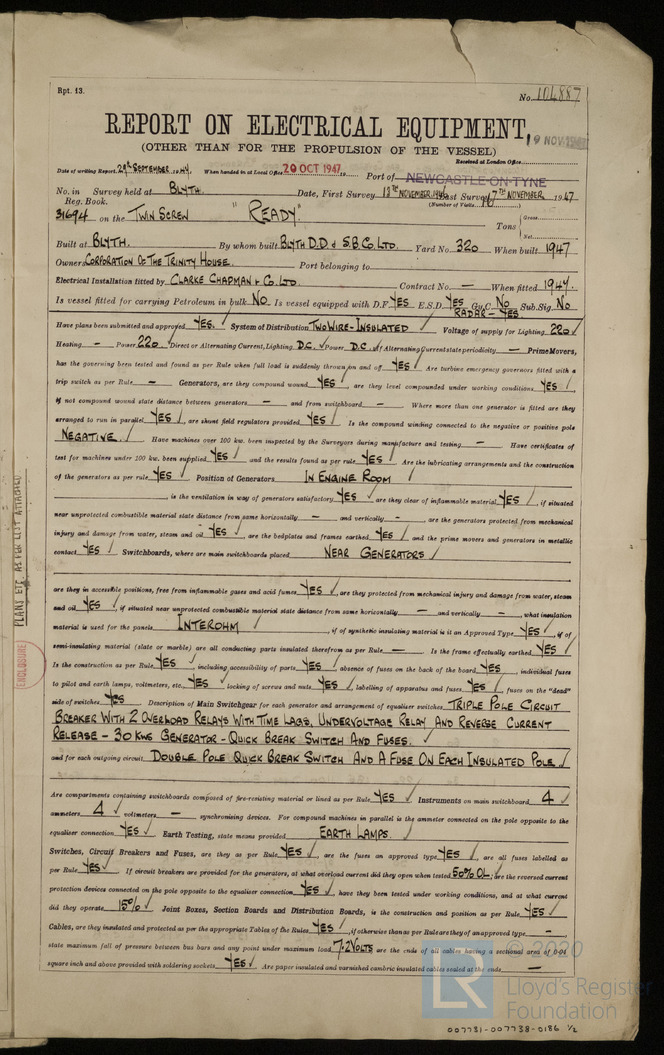 Rpt. 13.
No. 104887
REPORT ON ELECTRICAL EQUIPMENT,
(OTHER THAN FOR THE PROPULSION OF THE VESSEL)
19 NOV 1947
Received at London Office
Date of writing Report 29th SEPTEMBER 1947. When handed in at Local Office 20 OCT 1947 19 Port of NEWCASTLE-ON-TYNE
No. in Survey held at BLYTH. Date, First Survey NOVEMBER Last Survey 17TH NOVEMBER 1947
Reg. Book. (Number of Visits
31694 on the TWIN SCREW "READY" Tons { Gross
Net
Built at BLYTH. By whom built BLYTH D.D. & S.B. Co. LTD. Yard No. 320 When built 1947
Owners CORPORATION OF THE TRINITY HOUSE. Port belonging to
Electrical Installation fitted by CLARKE CHAPMAN & Co. LTD. Contract No. — When fitted 1947.
Is vessel fitted for carrying Petroleum in bulk NO Is vessel equipped with D.F. YES E.S.D. YES Gy.C. NO Sub.Sig. NO
RADAR - YES.
Have plans been submitted and approved YES. System of Distribution TWO WIRE - INSULATED Voltage of supply for Lighting 220
Heating — Power 220 Direct or Alternating Current, Lighting D.C. Power D.C. If Alternating Current state periodicity — Prime Movers,
has the governing been tested and found as per Rule when full load is suddenly thrown on and off YES Are turbine emergency governors fitted with a
trip switch as per Rule — Generators, are they compound wound YES, are they level compounded under working conditions YES,
if not compound wound state distance between generators — and from switchboard — Where more than one generator is fitted are they
arranged to run in parallel YES, are shunt field regulators provided YES Is the compound winding connected to the negative or positive pole
NEGATIVE. Have machines over 100 kw. been inspected by the Surveyors during manufacture and testing — Have certificates of
test for machines under 100 kw. been supplied YES and the results found as per rule YES Are the lubricating arrangements and the construction
of the generators as per rule YES Position of Generators IN ENGINE ROOM
, is the ventilation in way of generators satisfactory YES are they clear of inflammable material YES, if situated
near unprotected combustible material state distance from same horizontally — and vertically —, are the generators protected from mechanical
injury and damage from water, steam and oil YES, are the bedplates and frames earthed YES and the prime movers and generators in metallic
contact YES Switchboards, where are main switchboards placed NEAR GENERATORS
are they in accessible positions, free from inflammable gases and acid fumes YES, are they protected from mechanical injury and damage from water, steam
and oil YES, if situated near unprotected combustible material state distance from same horizontally — and vertically —, what insulation
material is used for the panels INTEROHM, if of synthetic insulating material is it an Approved Type YES, if of
semi-insulating material (slate or marble) are all conducting parts insulated therefrom as per Rule — Is the frame effectually earthed YES
Is the construction as per Rule YES, including accessibility of parts YES, absence of fuses on the back of the board YES, individual fuses
to pilot and earth lamps, voltmeters, etc. YES locking of screws and nuts YES, labelling of apparatus and fuses YES, fuses on the "dead"
side of switches YES Description of Main Switchgear for each generator and arrangement of equaliser switches TRIPLE POLE CIRCUIT
BREAKER WITH 2 OVERLOAD RELAYS WITH TIME LAGS, UNDERVOLTAGE RELAY AND REVERSE CURRENT
RELEASE - 30 KWS GENERATOR - QUICK BREAK SWITCH AND FUSES.
and for each outgoing circuit DOUBLE POLE QUICK BREAK SWITCH AND A FUSE ON EACH INSULATED POLE
Are compartments containing switchboards composed of fire-resisting material or lined as per Rule YES Instruments on main switchboard 4
ammeters 4 voltmeters — synchronising devices. For compound machines in parallel is the ammeter connected on the pole opposite to the
equaliser connection YES Earth Testing, state means provided EARTH LAMPS.
Switches, Circuit Breakers and Fuses, are they as per Rule YES, are the fuses an approved type YES, are all fuses labelled as
per Rule YES If circuit breakers are provided for the generators, at what overload current did they open when tested 50% OL, are the reversed current
protection devices connected on the pole opposite to the equaliser connection YES, have they been tested under working conditions, and at what current
did they operate 15% Joint Boxes, Section Boards and Distribution Boards, is the construction and position as per Rule YES
Cables, are they insulated and protected as per the appropriate Tables of the Rules YES, if otherwise than as per Rule are they of an approved type —
state maximum fall of pressure between bus bars and any point under maximum load 7.2 VOLTS are the ends of all cables having a sectional area of 0.04
square inch and above provided with soldering sockets YES Are paper insulated and varnished cambric insulated cables sealed at the ends —
PLANS ETC. AS PER LIST ATTACHED
ENCLOSURE
© 2020
LR
Lloyd's Register
Foundation
007731-007738-0186 1/2